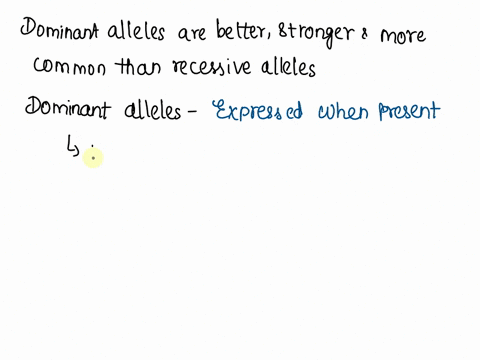 Dominant alleles are better, stronger & more
common than recessive alleles
Dominant alleles - Expressed when present
↳